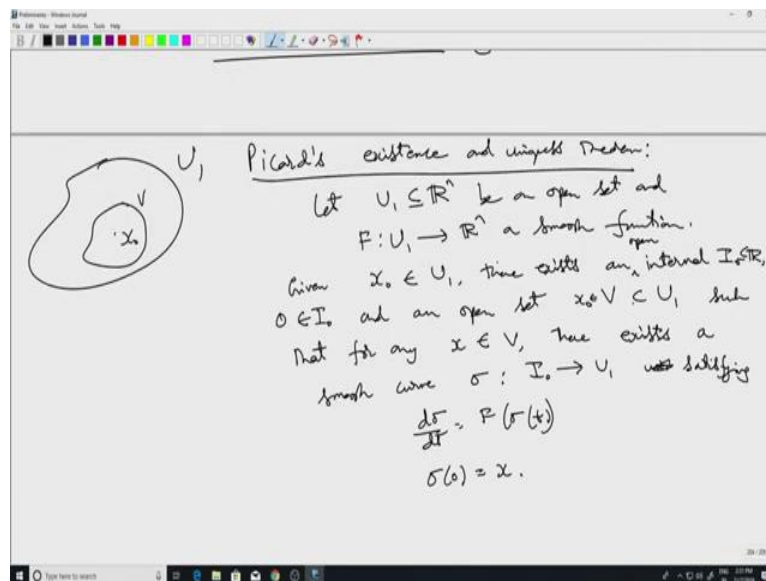 Preliminaries - Windows Journal
File Edit View Insert Actions Tools Help
U₁
V
·x₀
Picard's existence and uniquess Theorem:
Let U₁ ⊆ ℝⁿ be an open set and
F : U₁ → ℝⁿ a smooth function.
open
Given x₀ ∈ U₁, there exists an interval I₀ ⊆ ℝ,
0 ∈ I₀ and an open set x₀ ∈ V ⊂ U₁ such
that for any x ∈ V, there exists a
smooth curve σ : I₀ → U₁ satisfying
dσ/dt = F(σ(t))
σ(0) = x.
Type here to search